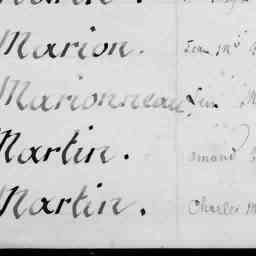 Marion. Jean M
Marionneau
Martin. amand
Martin. Charles M